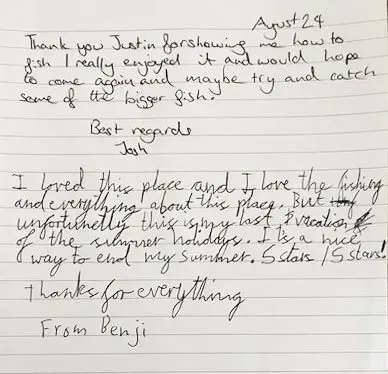 August 24
Thank you Justin for showing me how to
fish I really enjoyed it and would hope
to come again and maybe try and catch
some of the bigger fish.
Best regards
Josh
I loved this place and I love the fishing
and everything about this place. But
unfortunetly this is my last vacation
of the summer holidays. It's a nice
way to end my summer. 5 stars / 5 stars!
Thanks for everything
From Benji